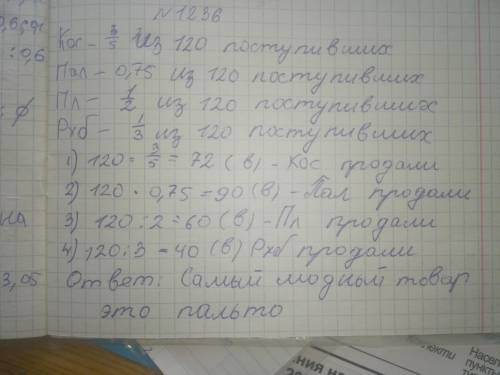 №1236
Кос - 3/5 из 120 поступивших
Пал - 0,75 из 120 поступивших
Пл - 1/2 из 120 поступивших
Рхб - 1/3 из 120 поступивших
1) 120 · 3/5 = 72 (в) - Кос продали
2) 120 · 0,75 = 90 (в) - Пал продали
3) 120 : 2 = 60 (в) - Пл продали
4) 120 : 3 = 40 (в) Рхб продали
Ответ: Самый модный товар
это пальто
: 0,6
на
3,05